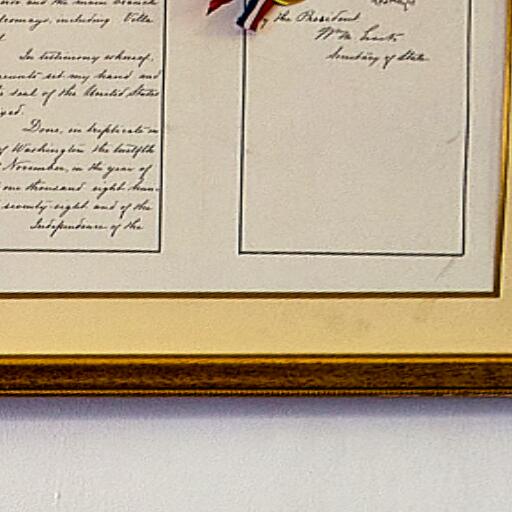 and the main branch
including Villa
In testimony whereof,
set my hand and
seal of the United States
Done, in triplicate in
of Washington the twelfth
November, in the year of
one thousand eight hun-
seventy-eight and of the
Independence of the
by the President
Secretary of State